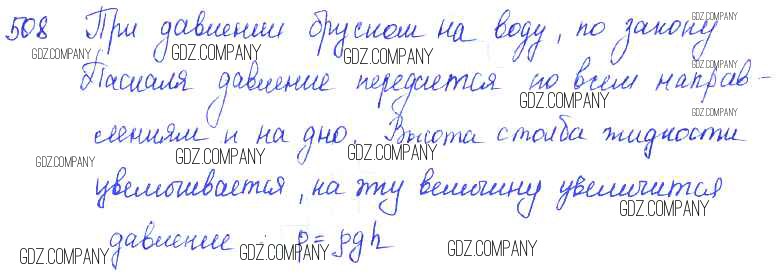 508 При давлении бруском на воду, по закону
Паскаля давление передается по всем направ-
лениям и на дно. Высота столба жидкости
увеличивается, на эту величину увеличится
давление p = ρgh
GDZ.COMPANY GDZ.COMPANY GDZ.COMPANY GDZ.COMPANY
GDZ.COMPANY GDZ.COMPANY GDZ.COMPANY
GDZ.COMPANY GDZ.COMPANY GDZ.COMPANY GDZ.COMPANY
GDZ.COMPANY
GDZ.COMPANY GDZ.COMPANY GDZ.COMPANY